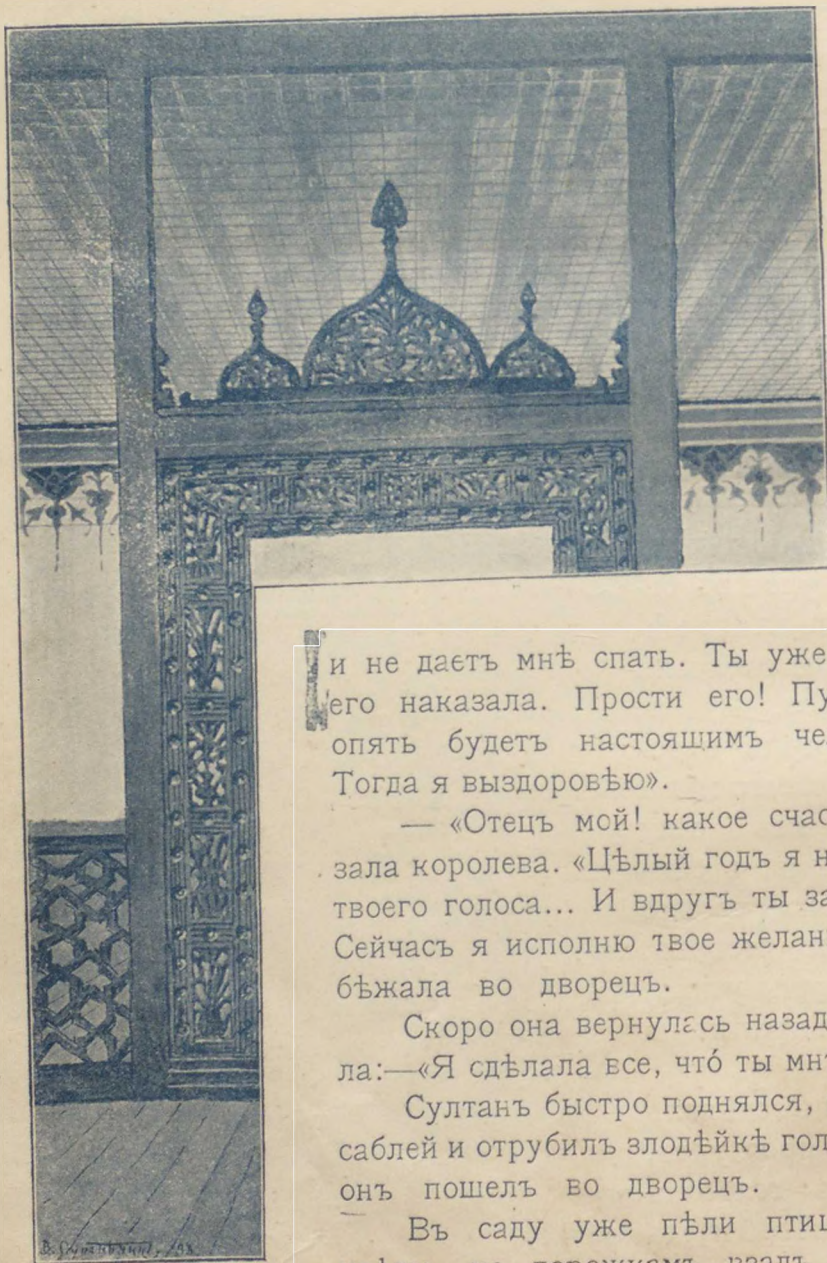 и не даетъ мнѣ спать. Ты уже
его наказала. Прости его!
опять будетъ настоящимъ
Тогда я выздоровѣю».
— «Отецъ мой! какое
зала королева. «Цѣлый годъ я
твоего голоса... И вдругъ ты
Сейчасъ я исполню твое
бѣжала во дворецъ.
Скоро она вернулась
ла:—«Я сдѣлала все, что́ ты
Султанъ быстро поднялся,
саблей и отрубилъ злодѣйкѣ
онъ пошелъ во дворецъ.
Въ саду уже пѣли